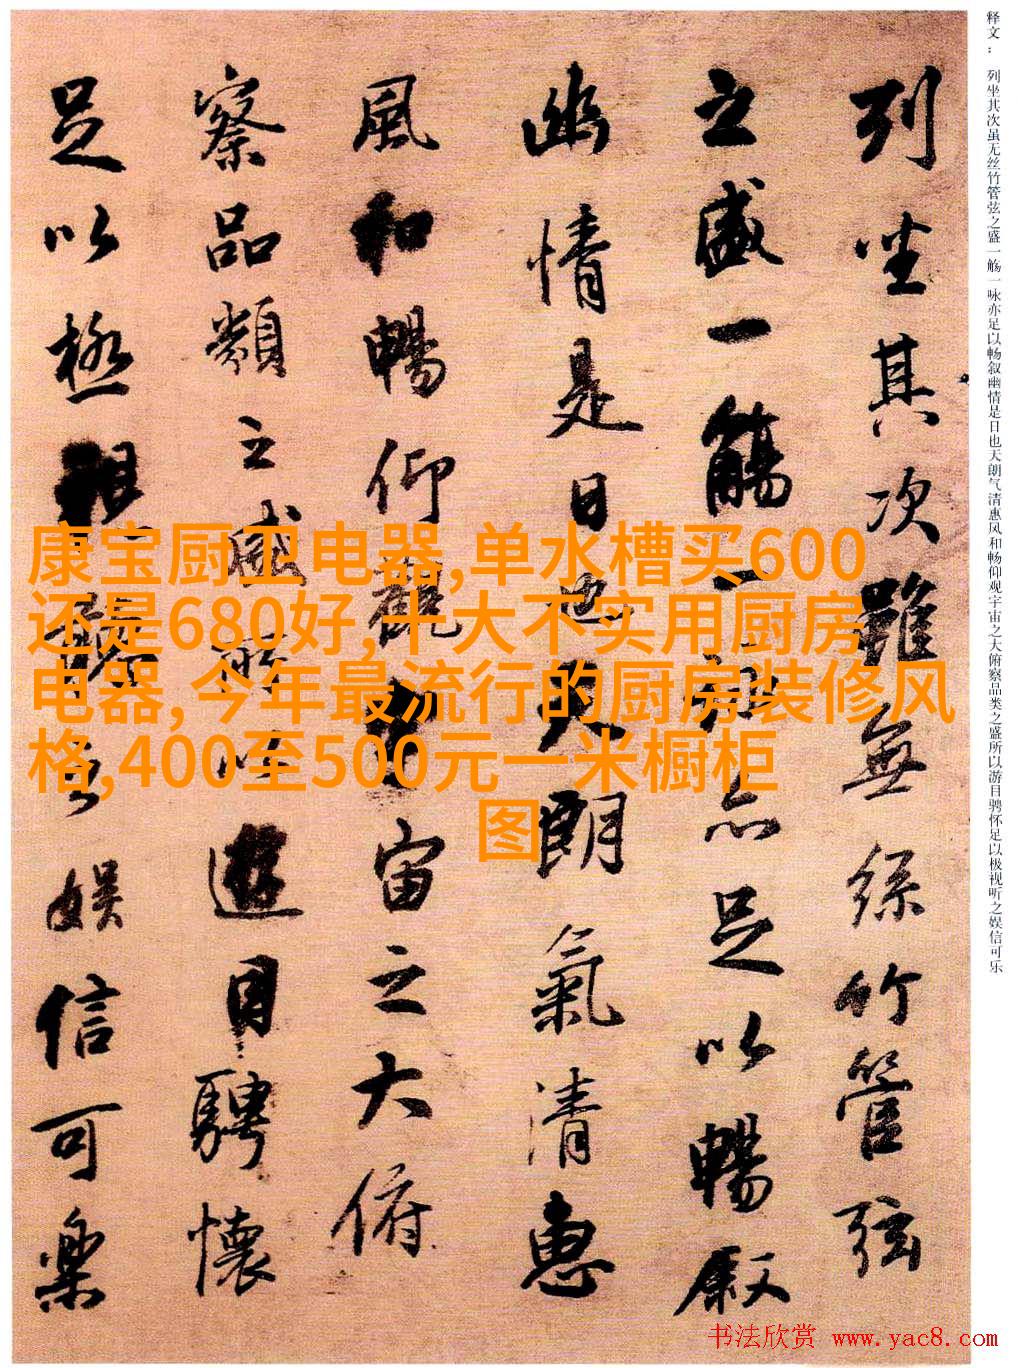 释文： 列坐其次虽无丝竹管弦之盛一觞一咏亦足以畅叙幽情是日也天朗气清惠风和畅仰观宇宙之大俯察品类之盛所以游目骋怀足以极视听之娱信可乐
列坐其次雖無絲竹管弦
之盛一觴一詠亦足以暢叙
幽情是日也天朗氣清惠
風和暢仰觀宇宙之大俯
察品類之盛所以遊目騁懷
足以極視聽之娛信可樂
康宝厨卫电器,单水槽买600
还是680好,十大不实用厨房
电器,今年最流行的厨房装修风
格,400至500元一米橱柜
图
书法欣赏 www.yac8.com